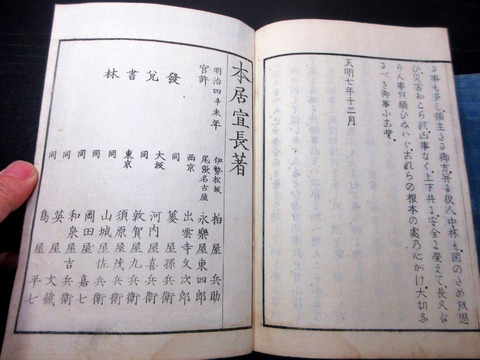 る事も多し
災害おこらぬ凶事なく、上下共に安全に栄えて、長久な
らん事を願ひ これらの根本の處乃心がけ、大切な
るべき御事にこそ
天明七年十二月
本居宣長著
明治四辛未年
官許
發兌書林
伊勢松坂 柏屋兵助
尾張名古屋 永樂屋東四郎
西京 出雲寺文次郎
同 菱屋孫兵衛
大坂 河内屋喜兵衛
同 敦賀屋九兵衛
東京 須原屋茂兵衛
同 山城屋佐兵衛
同 岡田屋嘉七
同 和泉屋吉兵衛
同 英屋文藏
同 島屋平七